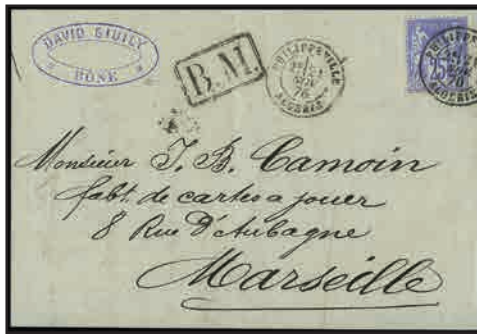 DAVID GIUILY
BÔNE
B.M.
PHILIPPEVILLE
76
ALGERIE
25
PHILIPPEVILLE
ALGERIE
Monsieur J. B. Camoin
fabt. de cartes a jouer
8 Rue D'Aubagne
Marseille